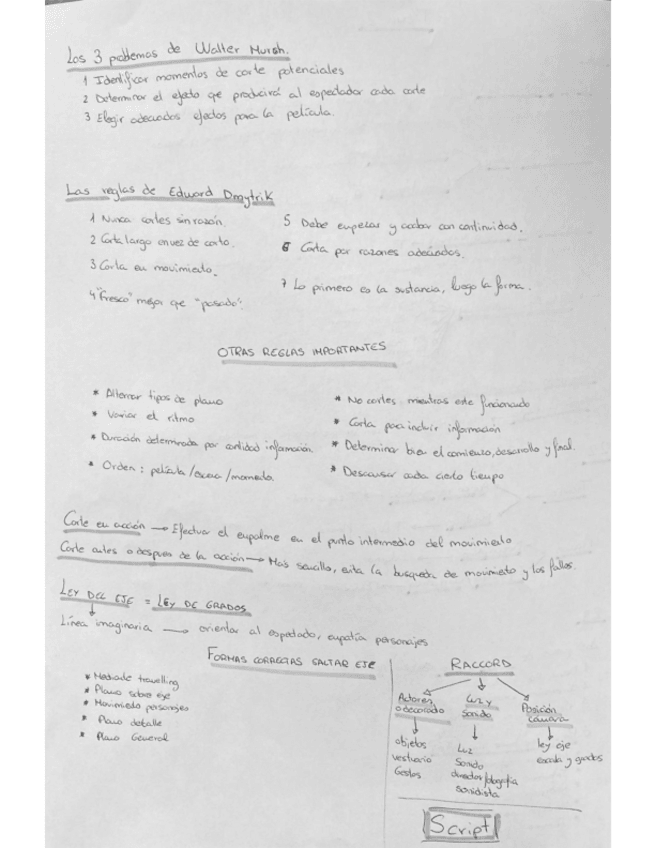 Los 3 problemas de Walter Mursh.
1 Identificar momentos de corte potenciales
2 Determinar el efecto que producirá al espectador cada corte
3 Elegir adecuados efectos para la película.
Las reglas de Edward Dmytrik
1 Nunca cortes sin razón.
2 Corta largo en vez de corto.
3 Corta en movimiento.
4 "Fresco" mejor que "pasado".
5 Debe empezar y acabar con continuidad.
6 Corta por razones adecuadas.
7 Lo primero es la sustancia, luego la forma.
OTRAS REGLAS IMPORTANTES
* Alternar tipos de plano
* Variar el ritmo
* Duración determinada por cantidad información.
* Orden: película/escena/momento.
* No cortes mientras este funcionando
* Corta para incluir información
* Determinar bien el comienzo, desarrollo y final.
* Descansar cada cierto tiempo
Corte en acción → Efectuar el empalme en el punto intermedio del movimiento
Corte antes o despues de la acción → Mas sencillo, evita la busqueda de movimiento y los fallos.
LEY DEL EJE = LEY DE GRADOS
Línea imaginaria → orientar al espectado, empatía personajes
FORMAS CORRECTAS SALTAR EJE
* Mediante travelling
* Plano sobre eje
* Movimiento personajes
* Plano detalle
* Plano General
RACCORD
Actores o decorado
objetos
vestuario
Gestos
Luz y Sonido
Luz
Sonido
director fotografía
sonidista
Posición cámara
ley eje
escala y grados
Script